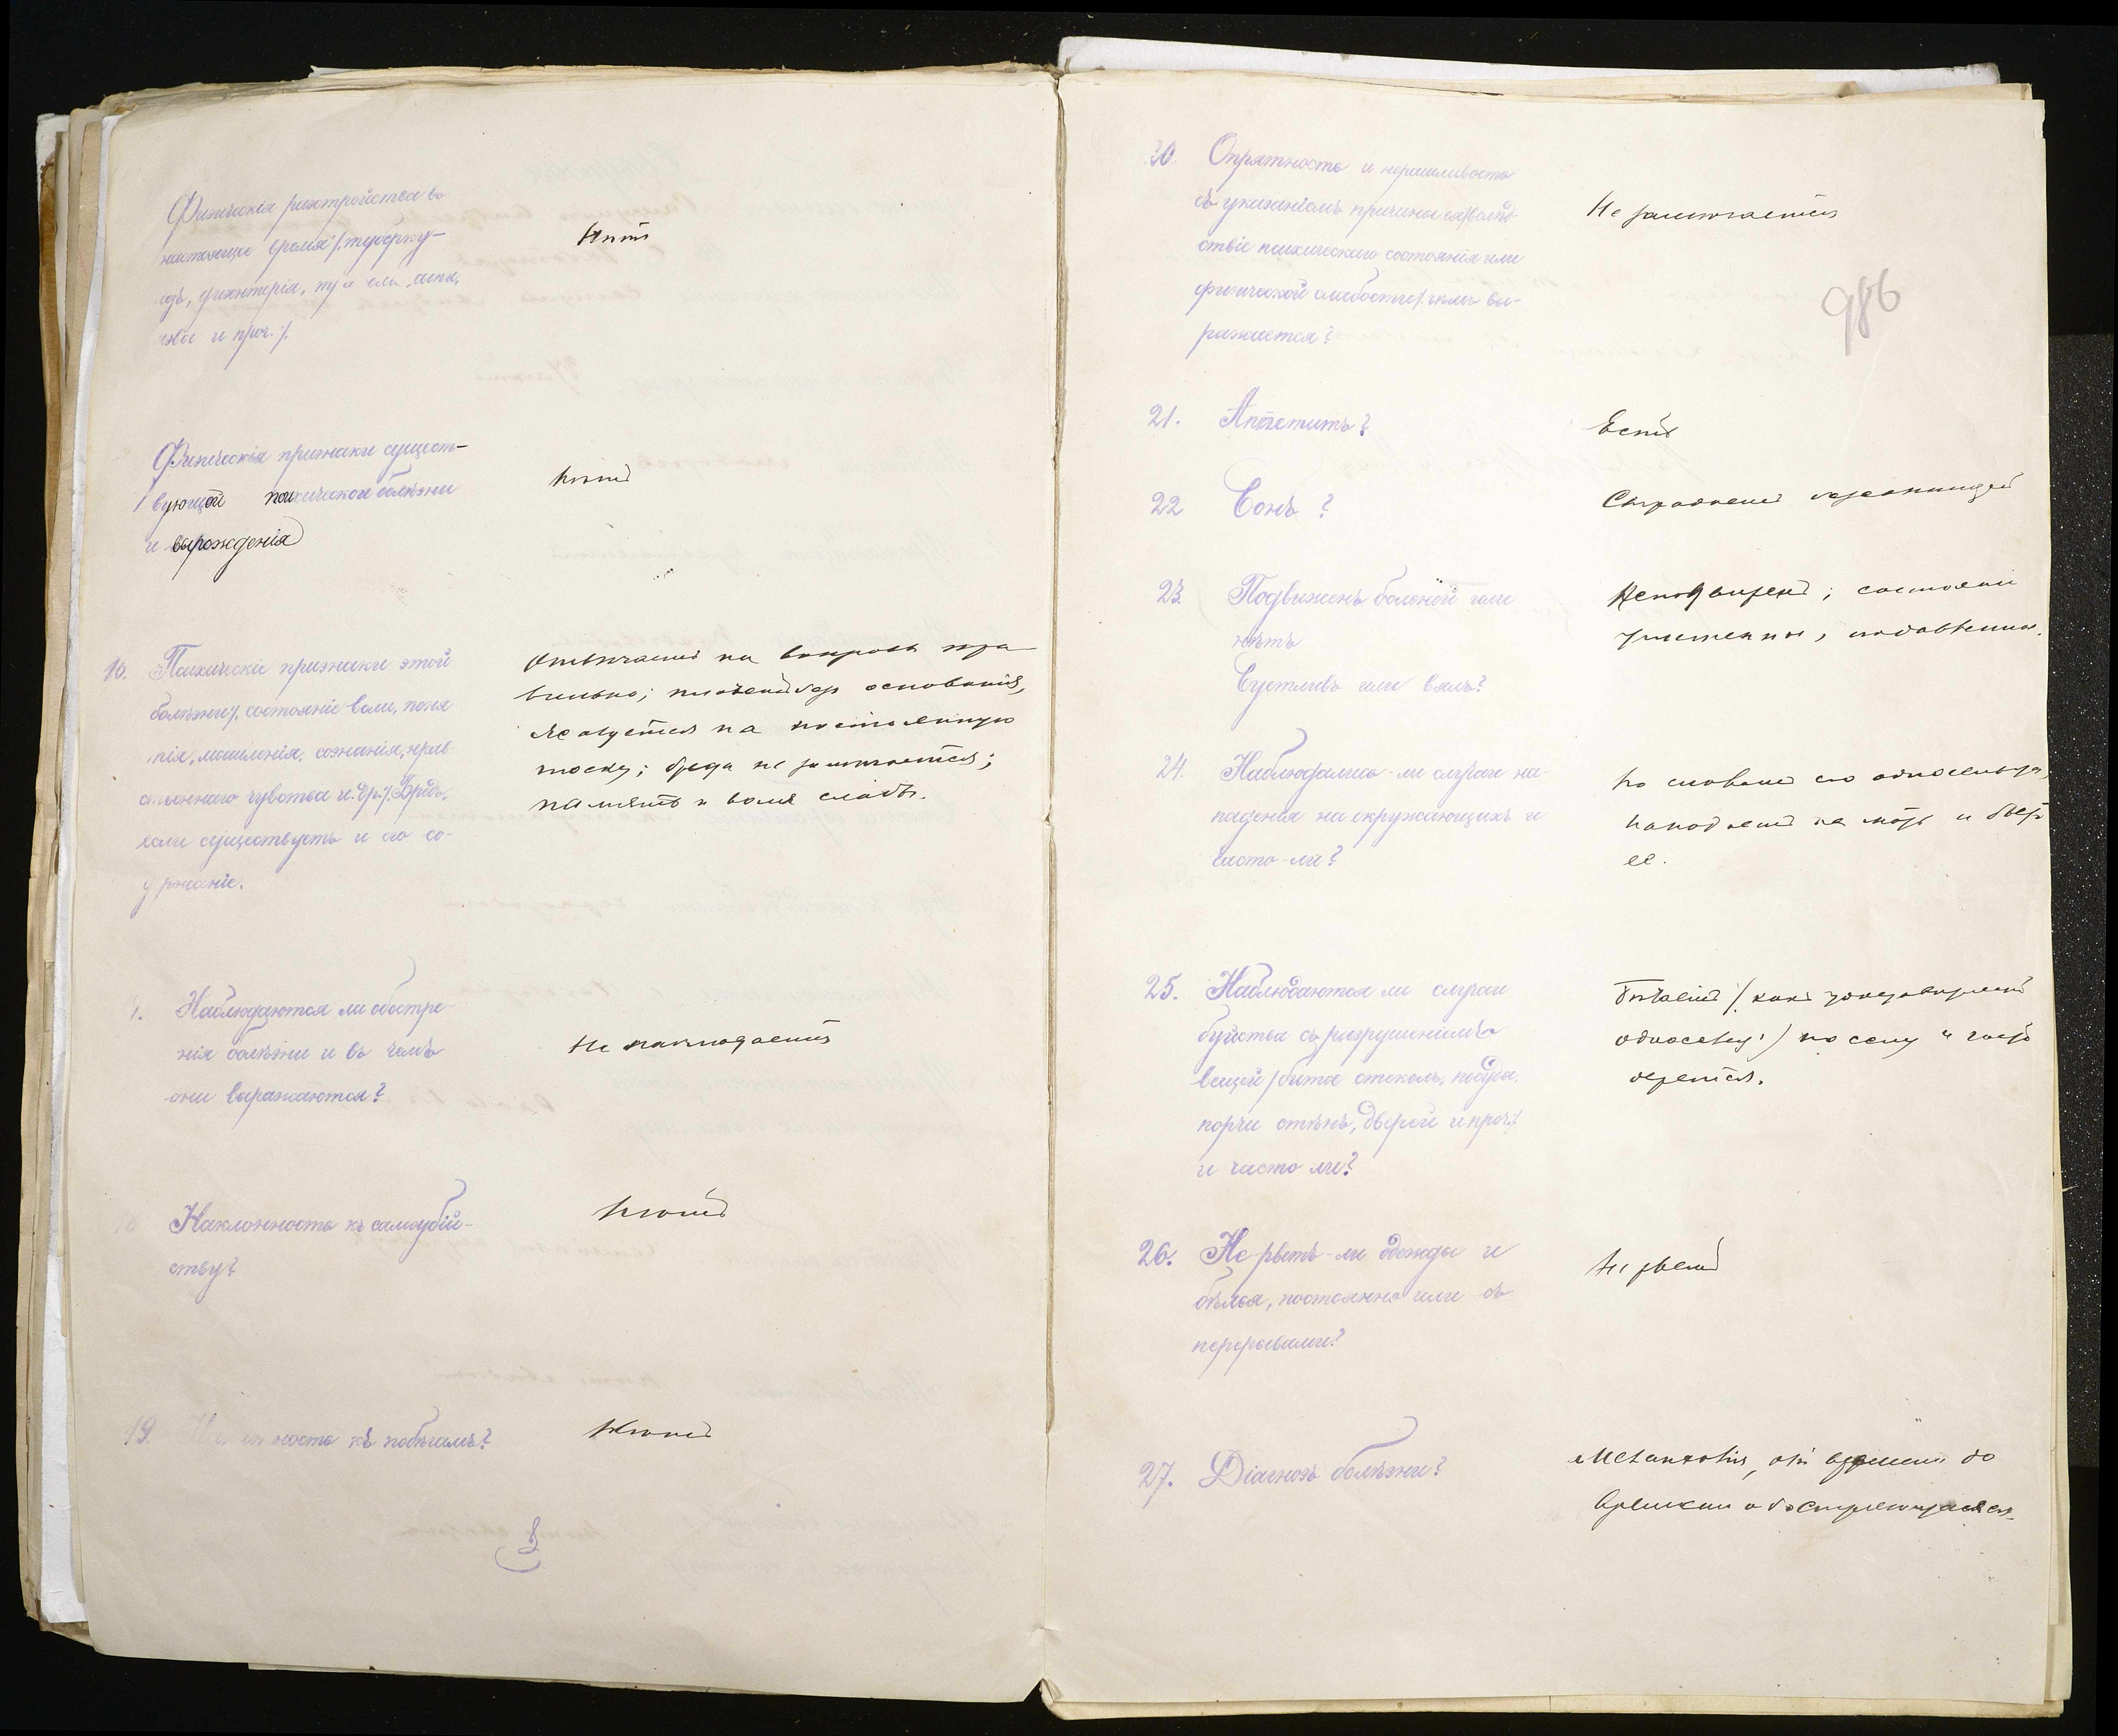 Физическія разстройства во
настоящее время /: туберку-
езъ, дизентерія,
и проч. :/
Нѣтъ
Физическія признаки сущест-
вующей психической болѣзни
и вырожденія
Нѣтъ
16. Психическіе признаки этой
болѣзни /: состояніе воли, поня
тія, мышленія, сознанія, нрав
ственнаго чувства и др. :/ Бредъ,
если существуетъ и его со-
держаніе.
Отвѣчаетъ на вопросы пра
вильно; основанія,
жалуется на постоянную
тоску; бреда не замѣчается;
память и воля слабы.
Наблюдаются ли обостре-
нія болѣзни и въ чемъ
они выражаются?
Не наблюдается
Наклонность къ самоубій-
ству?
Нѣтъ
19. Наклонность къ побѣгамъ?
Нѣтъ
20. Опрятность и неряшливость
съ указаніемъ причины ея /: вслѣд-
ствіе психическаго состоянія или
физической слабости :/ чѣмъ вы-
ражается?
Не замѣчается
986
21. Аппетитъ?
Есть
22 Сонъ?
Страдаетъ безсонницей
23. Подвиженъ больной или
нѣтъ
Суетливъ или вялъ?
Неподвиженъ; состояніе
угнетенное, подавленное.
24. Наблюдались-ли случаи на-
паденія на окружающихъ и
часто-ли?
По словамъ его односельца,
нападаетъ на мать и бьетъ
ее.
25. Наблюдаются ли случаи
буйства съ разрушеніемъ
вещей /: битье стеколъ, посуды,
порчи стѣнъ, дверей и проч. :/
и часто ли?
Бываетъ /: какъ удостовѣряетъ
односелец :/ по селу и часто
дерется.
26. Не рветъ-ли одежды и
бѣлья, постоянно или съ
перерывами?
Не рветъ
27. Діагнозъ болѣзни?
Melancholia, отъ времени до
времени обостряющаяся.